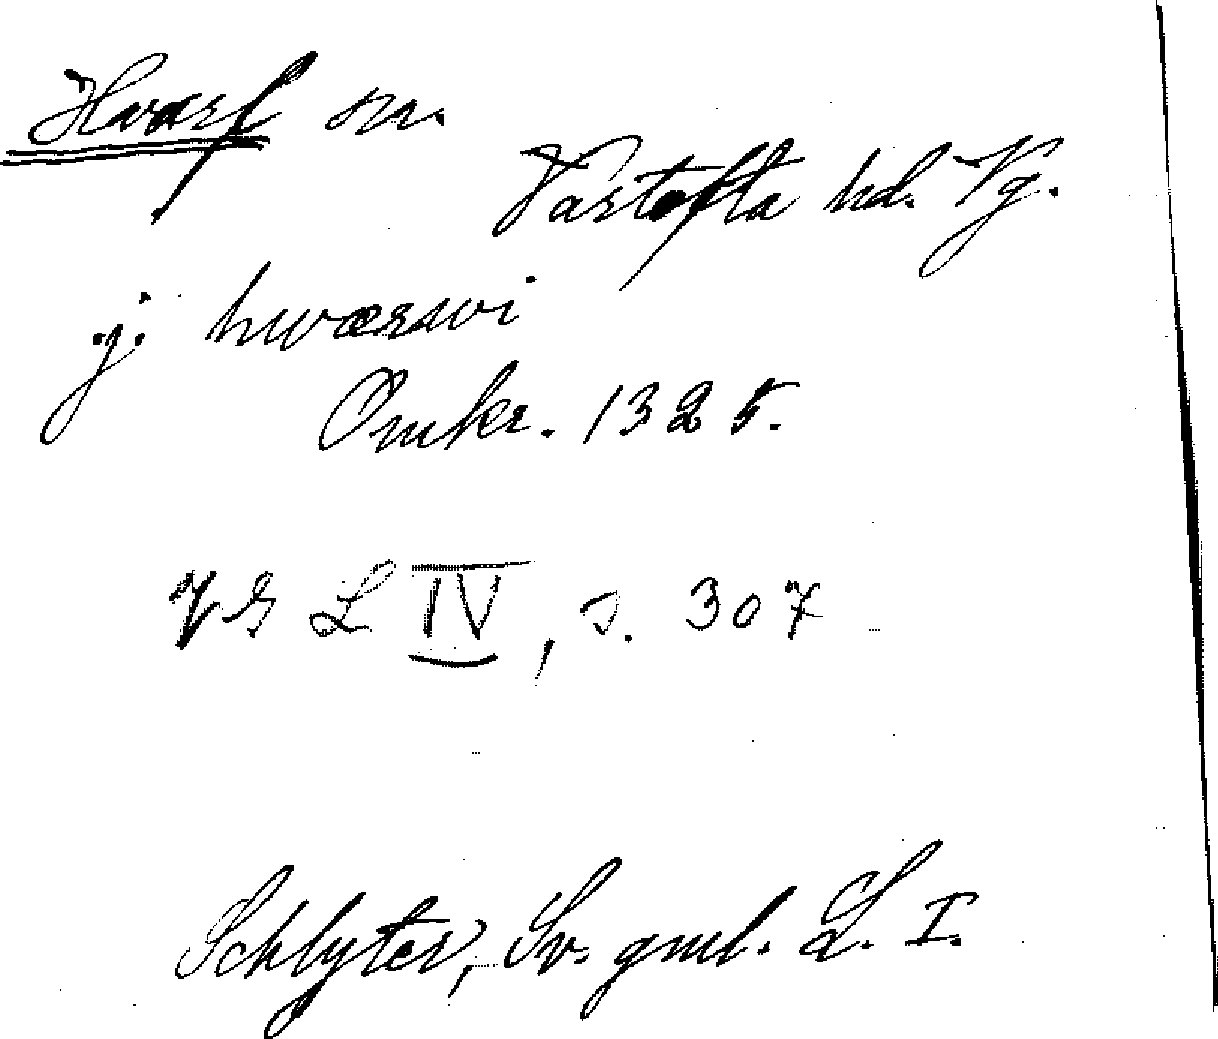 Hvarf sn.
Vartofta hd. Vg.
j. hwærwi
Omkr. 1325.
VGL IV, s. 307
Schlyter, Sv. gml. L. I.